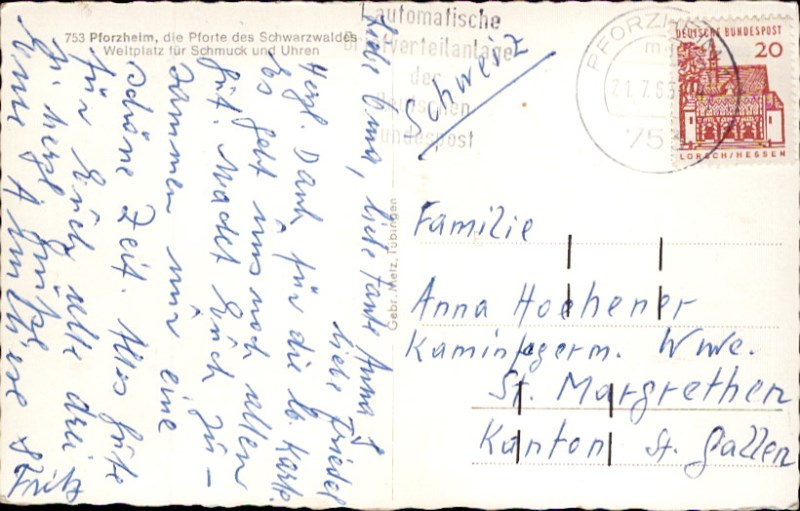 753 Pforzheim, die Pforte des Schwarzwaldes
Weltplatz für Schmuck und Uhren
automatische
Briefverteilanlage
der
Deutschen
Bundespost
PFORZHEIM
21.7.6
753
DEUTSCHE BUNDESPOST
20
LORSCH/HESSEN
Schweiz
Gebr. Metz, Tübingen
Liebe Oma, liebe Tante Anna &
liebe Friedel
Herzl. Dank für die lb. Karte.
Es geht uns noch allen
gut. Macht Euch zu-
sammen nur eine
schöne Zeit. Alles Gute
für Euch alle drei
herzl. Grüße
&
Fritz
Familie
Anna Hoehener
Kaminfegerm. Wwe.
St. Margrethen
Kanton St. Gallen